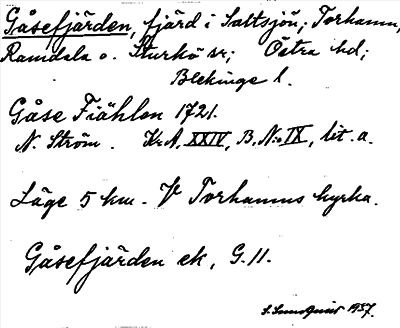 Gåsefjärden, fjärd i Saltsjön; Torhamn,
Ramdala o. Sturkö sr; Östra hd;
Blekinge l.
Gåse Fiählen 1721.
N. Ström. Kr.A. XXIV, B. N:o IX, lit. a.
Läge 5 km. V Torhamns kyrka.
Gåsefjärden ek, G. 11.
S. Sundquist 1937.